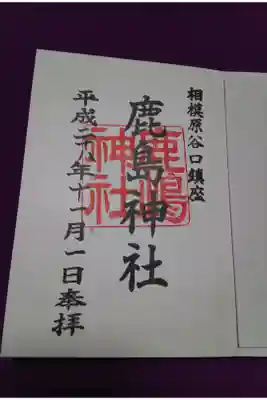 相模原谷口鎮座
鹿島神社
鹿嶋
神社
平成二八年十一月一日奉拝